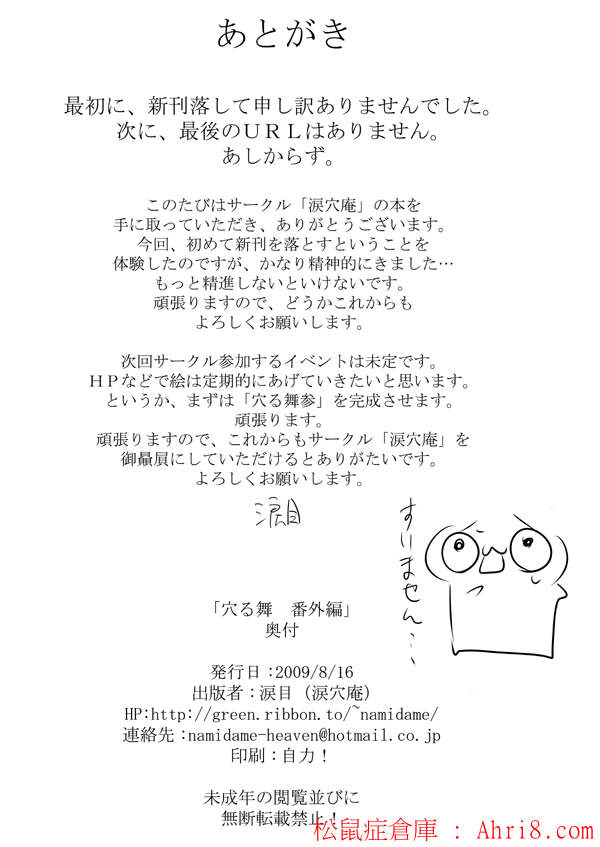 あとがき
最初に、新刊落して申し訳ありませんでした。
次に、最後のＵＲＬはありません。
あしからず。
このたびはサークル「涙穴庵」の本を
手に取っていただき、ありがとうございます。
今回、初めて新刊を落とすということを
体験したのですが、かなり精神的にきました…
もっと精進しないといけないです。
頑張りますので、どうかこれからも
よろしくお願いします。
次回サークル参加するイベントは未定です。
ＨＰなどで絵は定期的にあげていきたいと思います。
というか、まずは「穴る舞参」を完成させます。
頑張ります。
頑張りますので、これからもサークル「涙穴庵」を
御贔屓にしていただけるとありがたいです。
よろしくお願いします。
涙目
すいません…
「穴る舞　番外編」
奥付
発行日：2009/8/16
出版者：涙目（涙穴庵）
HP:http://green.ribbon.to/~namidame/
連絡先：namidame-heaven@hotmail.co.jp
印刷：自力！
未成年の閲覧並びに
無断転載禁止！
松鼠症倉庫 : Ahri8.com